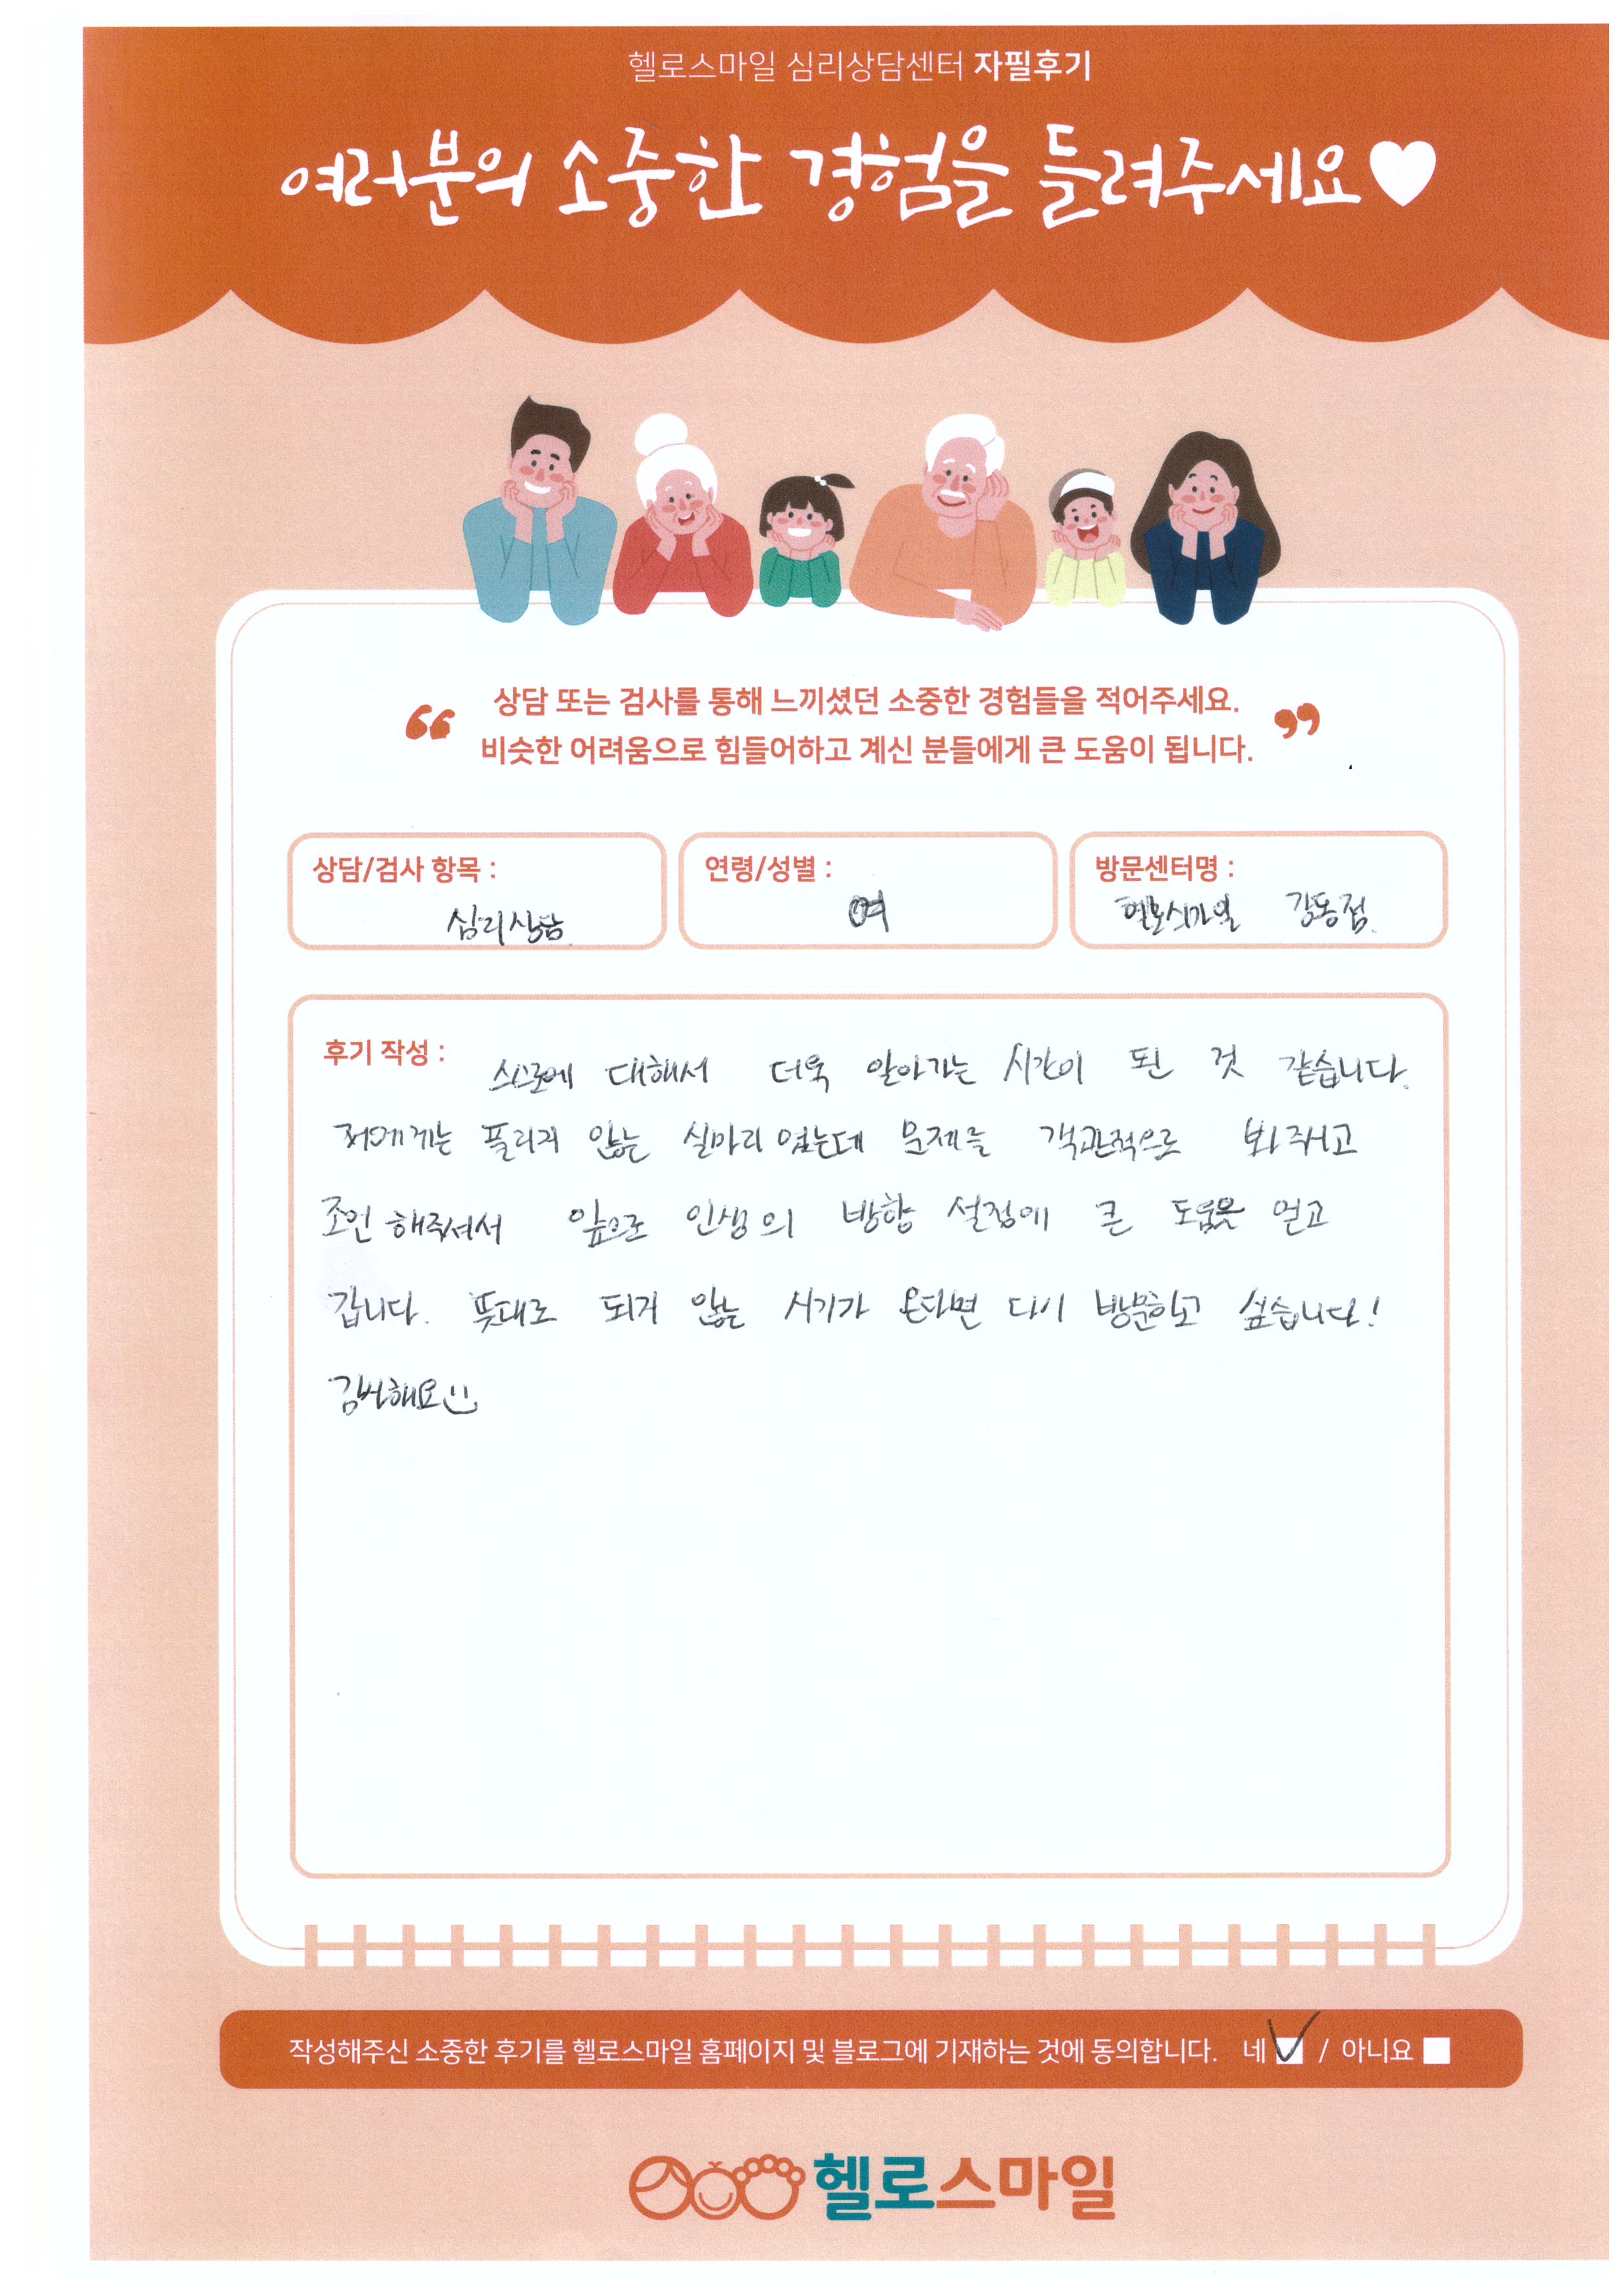 헬로스마일 심리상담센터 자필후기
여러분의 소중한 경험을 들려주세요
상담 또는 검사를 통해 느끼셨던 소중한 경험들을 적어주세요.
비슷한 어려움으로 힘들어하고 계신 분들에게 큰 도움이 됩니다.
상담/검사 항목 : 심리상담
연령/성별 : 여
방문센터명 : 헬로스마일 강동점.
후기 작성 : 스스로에 대해서 더욱 알아가는 시간이 된 것 같습니다.
저에게는 풀리지 않는 실마리 였는데 문제를 객관적으로 봐주시고
조언 해주셔서 앞으로 인생의 방향 설정에 큰 도움을 얻고
갑니다. 뜻대로 되지 않는 시기가 온다면 다시 방문하고 싶습니다!
감사해요
작성해주신 소중한 후기를 헬로스마일 홈페이지 및 블로그에 기재하는 것에 동의합니다. 네 / 아니요
헬로스마일